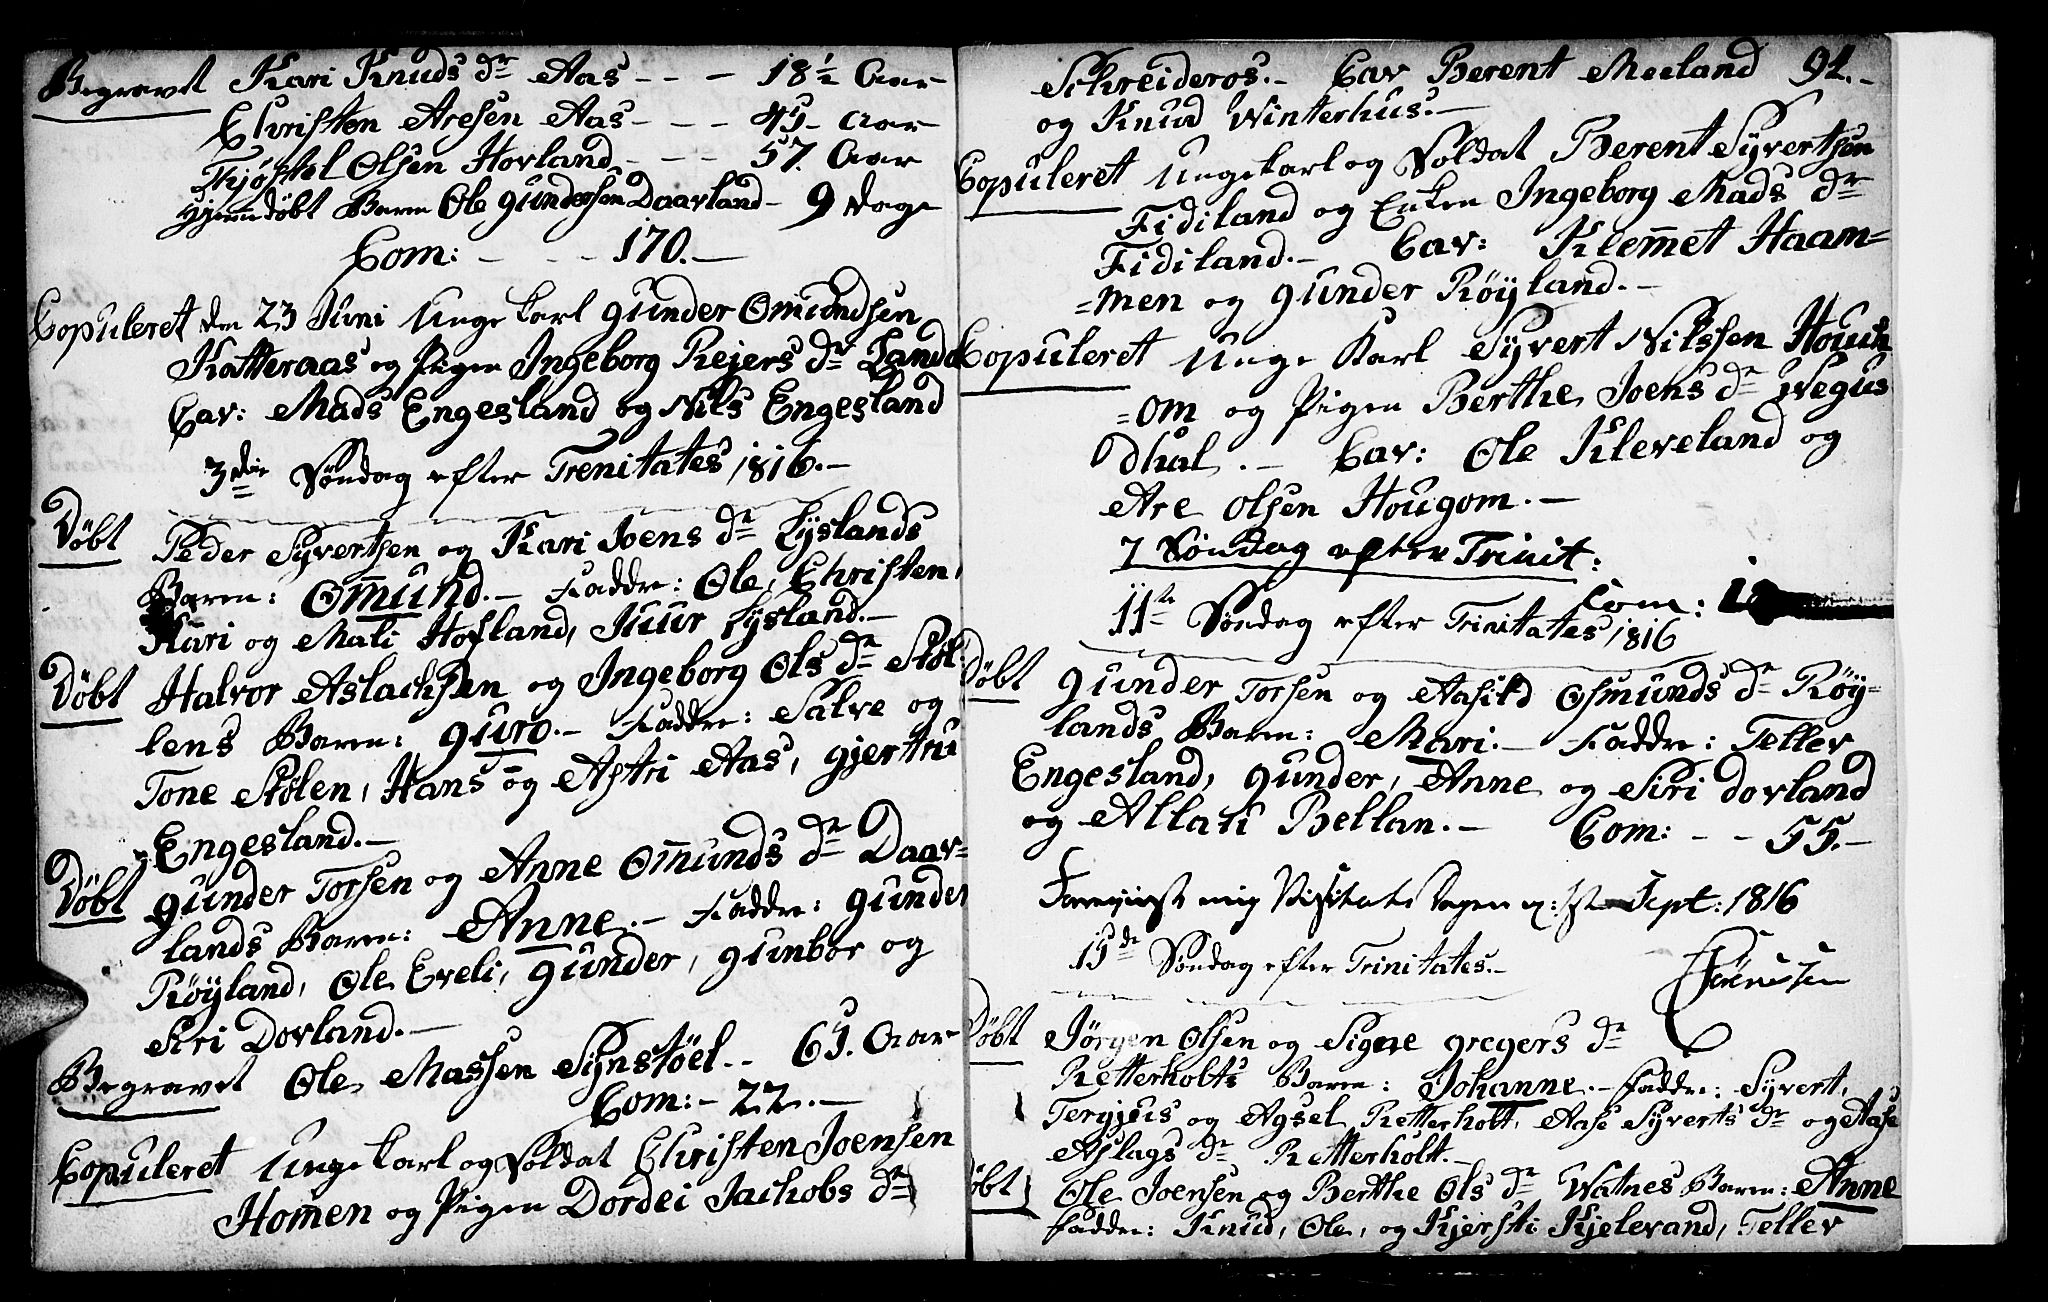 Begravet Kari Knuds dr Aas - - - 18½ Aar
Christen Aresen Aas - - - 45 Aar
Kjøstel Olsen Hovland - - - 57. Aar
Hjemmedøbt Barn Ole Gundersen Daarland - 9 Dage
Com: - - - 170. -
Copuleret den 23 Juni Ungekarl Gunder Omundsen
Katteraas og Pigen Ingeborg Rejers dr Land
Cav: Mads Engesland og Nils Engesland
3die Søndag efter Trenitates 1816. -
Døbt Peder Syvertsen og Kari Joens dr Lyslands
Baren: Omund. - Faddre: Ole, Christen,
Kari og Mali Hofland, Juur Lysland. -
Døbt Halvor Aslachsen og Ingeborg Ols dr Støl
lens Baren: Guro. - Faddre: Salve og
Tone Stølen, Hans og Astri Aas, Gjertru
Engesland. -
Døbt Gunder Torsen og Anne Omunds dr Daar=
lands Baren: Anne. - Faddre: Gunder
Røyland, Ole Eveli, Gunder, Gunbor og
Siri Dovland. -
Begravet Ole Massen Synstøel - 65. Aar
Com: - 22. -
Copuleret Ungekarl og Soldat Christen Joensen
Homen og Pigen Dordei Jachobs dr
Schreideros. - Cav Berent Meeland 91. -
og Knud Winterhus. -
Copuleret Ungekarl og Soldat Berent Syvertsen
Fidiland og Enken Ingeborg Mads dr
Fidiland. - Cav: Klemet Haam=
=men og Gunder Røyland. -
Copuleret Unge Karl Syvert Nilssen Houch
=om og Pigen Berthe Joens dr Wegus
dhal. - Cav: Ole Kleveland og
Are Olsen Hougom. -
7 Søndag efter Trinit:
Com:
11te Søndag efter Trinitates 1816
Døbt Gunder Torsen og Aasild Osmunds dr Røy=
lands Baren: Mari. - Faddre: Tellev
Engesland, Gunder, Anne og Siri Dovland
og Allau Bellan. - Com: - - 55. -
Foreviist mig Visitats Dagen Sept: 1816
15de Søndag efter Trinitates. -
Døbt Jörgen Olsen og Signe Gregers dr
Retterholts Baren: Johanne. - Faddre: Syvert,
Tergjus og Agsel Retterholt, Aase Syverts dr og Aase
Aslags dr Retterholt. -
Døbt Ole Joensen og Berthe Ols dr Watnes Baren: Anne
Faddre: Knud, Ole, og Kjersti Kjelevand, Tellev